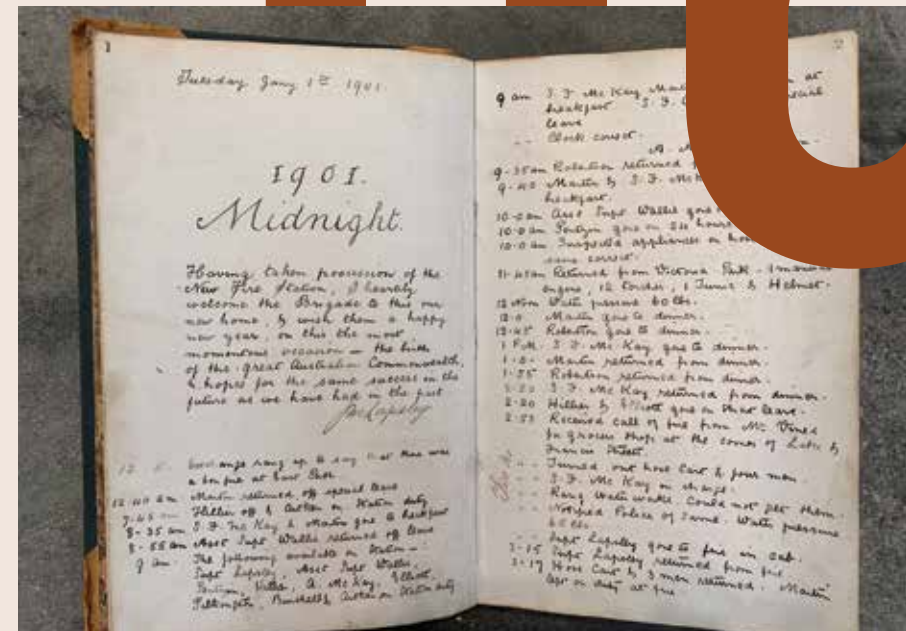 1
Tuesday Jany 1st 1901.
1901.
Midnight.
Having taken possession of the
New Fire Station, I heartily
welcome the Brigade to this our
new home, & wish them a happy
new year, on this the most
momentous occasion – the birth
of the great Australian Commonwealth,
& hopes for the same success in the
future as we have had in the past
Lapsley
12 Exchange rang up to say that there was
a bon fire at East Perth
12-40 am Martin returned off special leave
7-45 Hillier off & on Station duty
8-35 am S.F. McKay & Martin gone to breakfast
8-55 am Asst Supt Wallis returned off leave
9 am The following available on Station –
Supt Lapsley, Asst Supt Wallis,
Hillier, A. McKay, Elliott,
on Station duty
2
9 am S.F. McKay at
breakfast S.F. special
leave
" " Clock correct.
9-35am Robertson returned
9-40 Martin & S.F. McK
breakfast.
10-0 am Asst Supt Wallis gone
10-0 am gone on 24 hours
10-0 am Inspected appliances on
same correct.
11-45am Returned from Victoria Park. 1 manual
engine, 12 torches, 1 Tunic & Helmet.
12 Noon Water pressure 60 lbs.
12-0 Martin gone to dinner.
12-45 Robertson gone to dinner.
1 P.M. S.F. McKay gone to dinner.
1-0- Martin returned from dinner.
1-55 Robertson returned from dinner.
S.F. McKay returned from dinner.
2-20 Hillier & Elliott gone on short leave.
2-53 Received call of fire from Mr
grocers shop at the corner of Lake &
Francis Street.
" " Turned out hose Cart & four men
" " S.F. McKay in charge.
" " Rang water works Could not get them.
" " Notified Police of Same. Water pressure
65 lbs
" " Supt Lapsley gone to fire in cab.
3-15 Supt Lapsley returned from fire
3-17 Hose Cart & 3 men returned. Martin
left on duty at fire